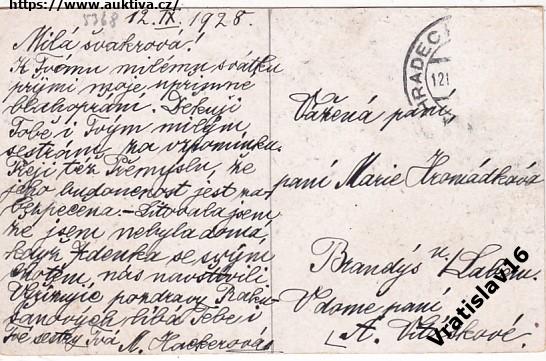 https://www.auktiva.cz/
5368
12. IX. 1928.
Milá švakrová!
K Tvému milému svátku
přijmi moje upřímné
blahopřání. Děkuji
Tobě i Tvým milým
sestrám za vzpomínku.
Těší též Přemyslu, že
jeho budoucnost jest za-
bezpečena. - Litovala jsem
že jsem nebyla doma,
když Zdenka se svým
chotěm nás navštívili
Vyřizujíc pozdravy
líbá Tebe i
Tvé sestry Tvá M. Hackerová
HRADEC
12
Vážená paní
paní Marie Hromádková
Brandýs n/Labem.
V domě paní
A. Vlčkové.
Vratislav16